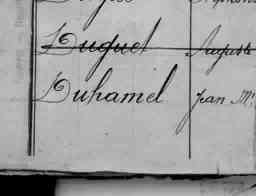 Duguet Auguste
Duhamel Jean M